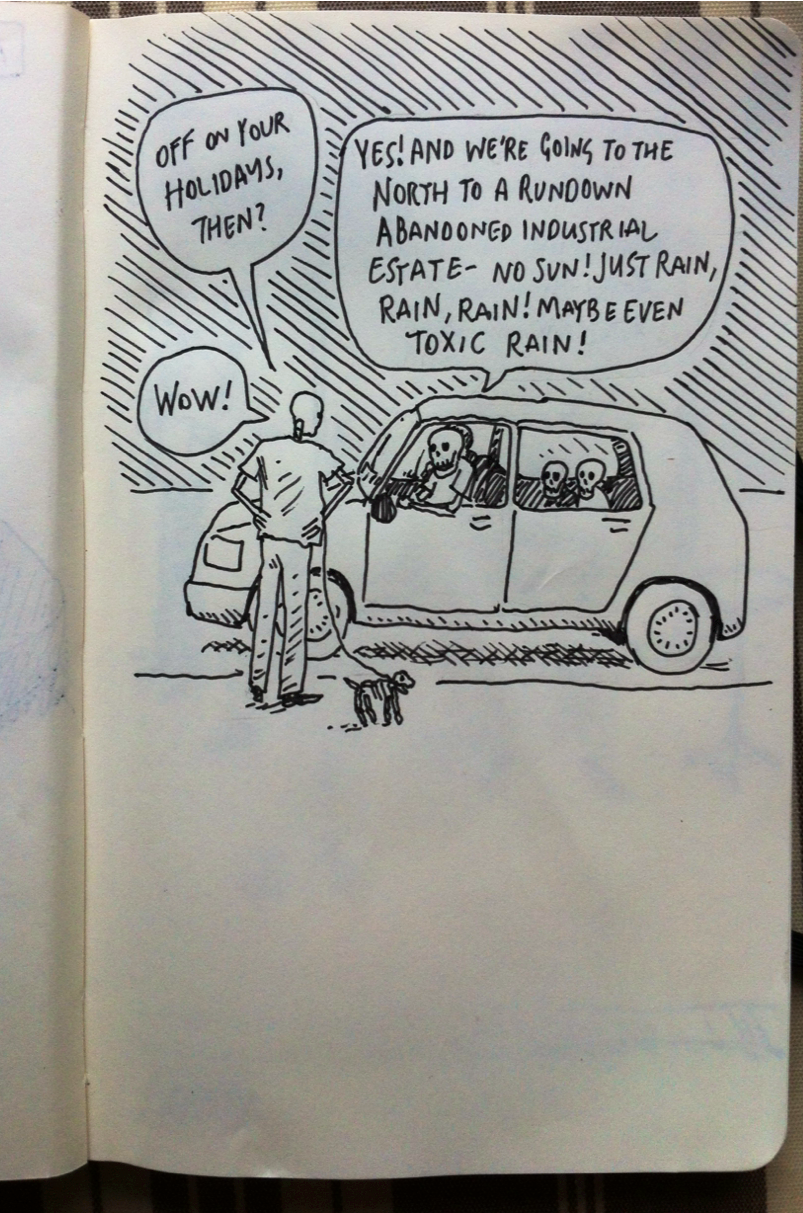 OFF ON YOUR
HOLIDAYS,
THEN?
YES! AND WE'RE GOING TO THE
NORTH TO A RUNDOWN
ABANDONED INDUSTRIAL
ESTATE- NO SUN! JUST RAIN,
RAIN, RAIN! MAYBE EVEN
TOXIC RAIN!
WOW!